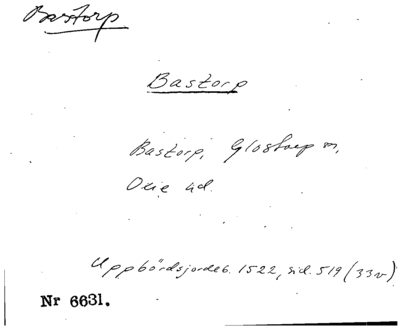 Bastorp
Bastorp
Bastorp, Glostorp sn,
Oxie hd.
Uppbördsjordeb. 1522, sid. 519 (33v)
Nr 6631.